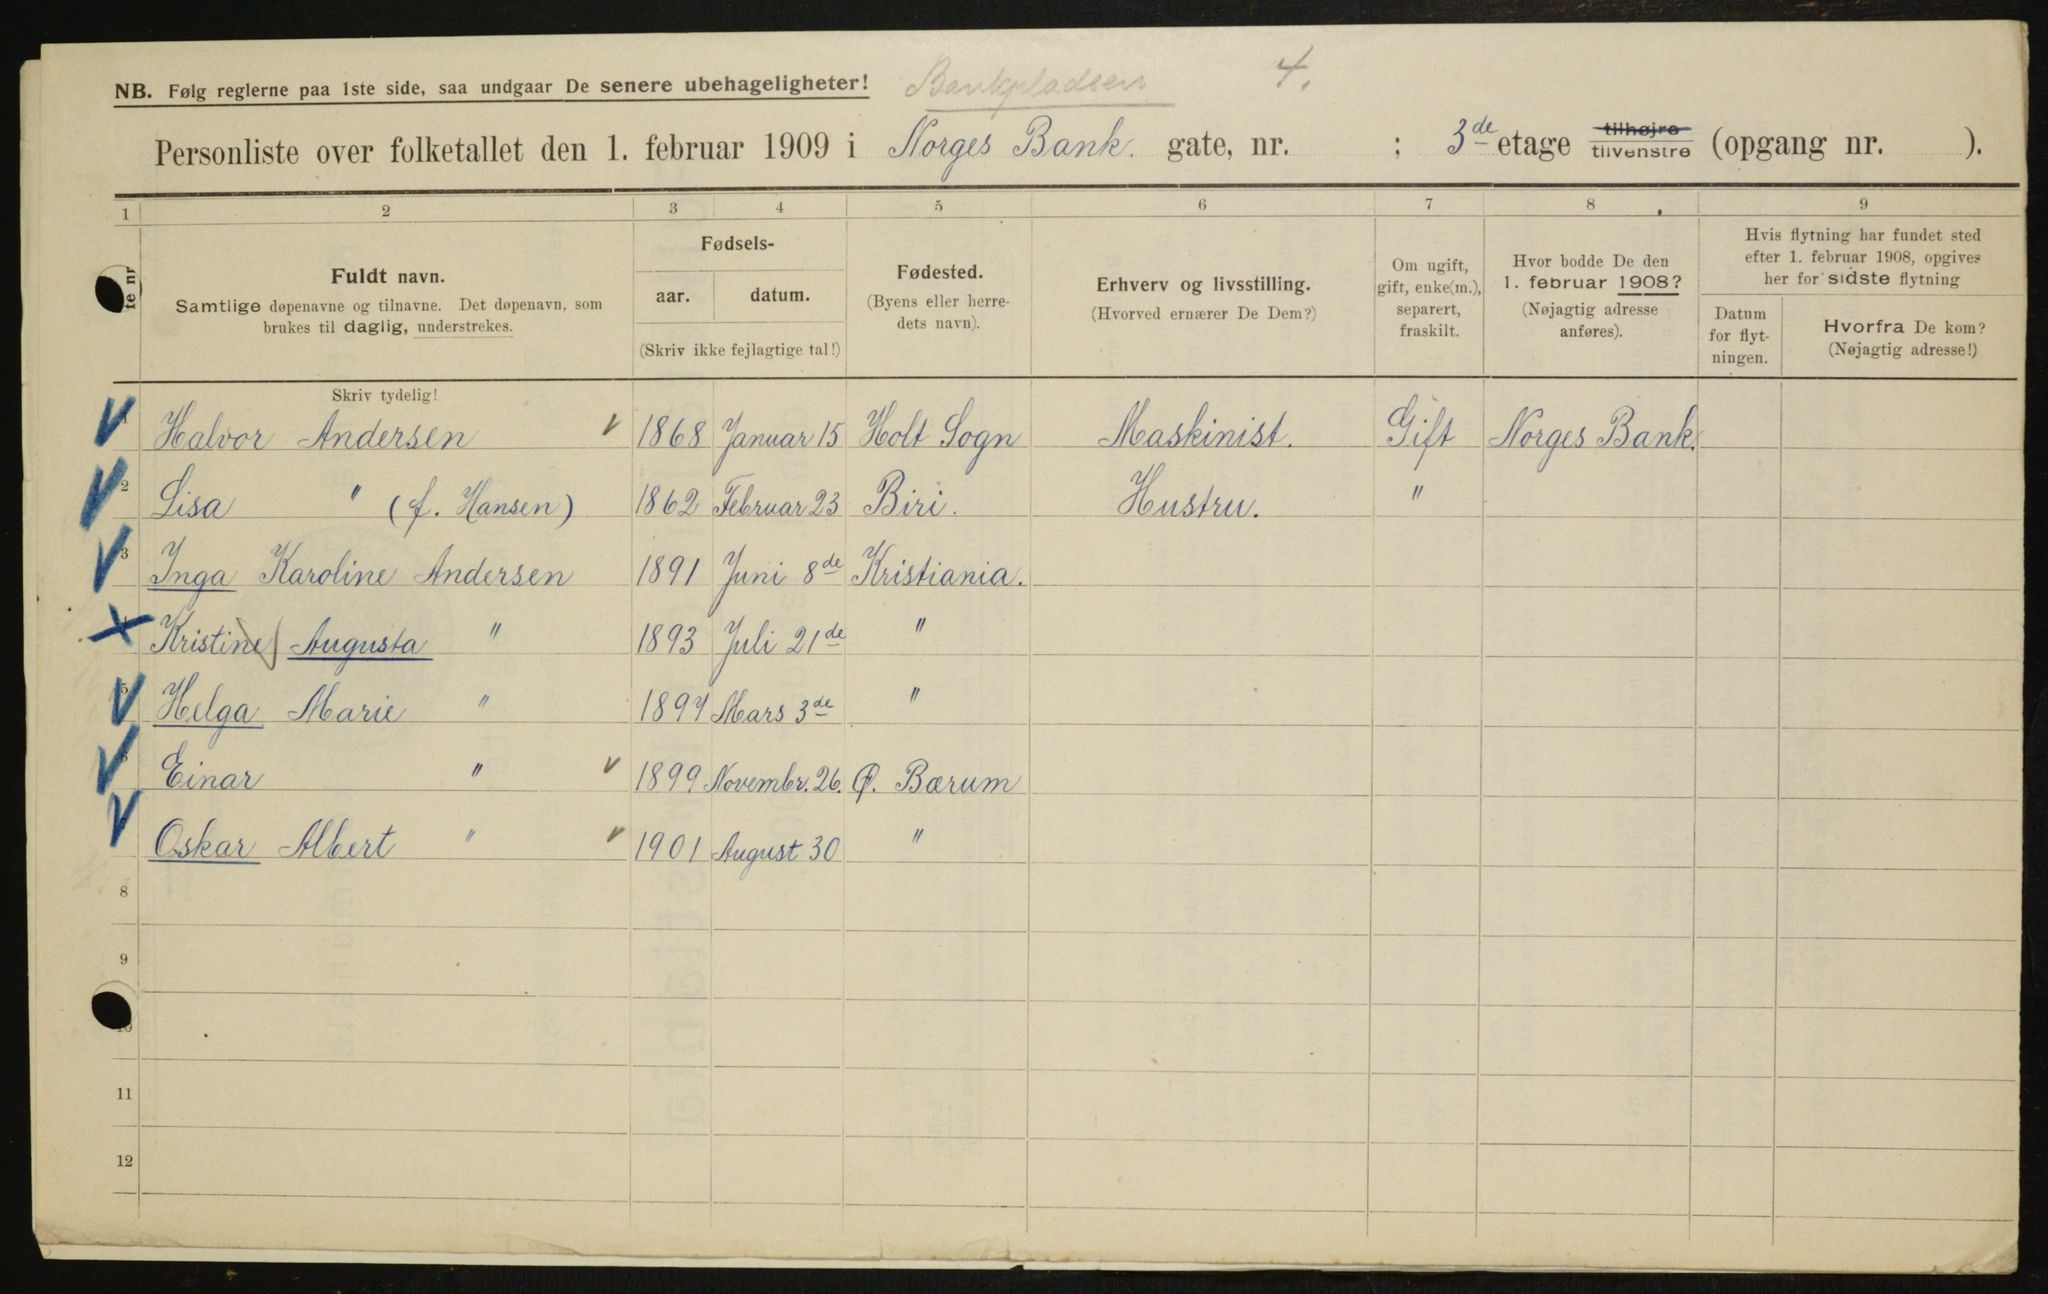 NB. Følg reglerne paa 1ste side, saa undgaar De senere ubehageligheter! Bankpladsen 4.
Personliste over folketallet den 1. februar 1909 i Norges Bank. gate, nr. ; 3de etage tilhøjre tilvenstre (opgang nr. ).
1 2 3 4 5 6 7 8 9
Fuldt navn.
Samtlige døpenavne og tilnavne. Det døpenavn, som
brukes til daglig, understrekes.
Skriv tydelig!
Fødsels-
aar. datum.
(Skriv ikke fejlagtige tal!)
Fødested.
(Byens eller herre-
dets navn).
Erhverv og livsstilling.
(Hvorved ernærer De Dem?)
Om ugift,
gift, enke(m.),
separert,
fraskilt.
Hvor bodde De den
1. februar 1908?
(Nøjagtig adresse
anføres).
Hvis flytning har fundet sted
efter 1. februar 1908, opgives
her for sidste flytning
Datum
for flyt-
ningen.
Hvorfra De kom?
(Nøjagtig adresse!)
1 Halvor Andersen 1868 Januar 15 Holt Sogn Maskinist. Gift Norges Bank.
2 Lisa " (f. Hansen) 1862 Februar 23 Biri. Hustru. "
3 Inga Karoline Andersen 1891 Juni 8de Kristiania.
4 Kristine Augusta " 1893 Juli 21de "
5 Helga Marie " 1897 Mars 3de "
6 Einar " 1899 Novembr. 26. Ø. Bærum
Oskar Albert " 1901 August 30 "
8
9
10
11
12